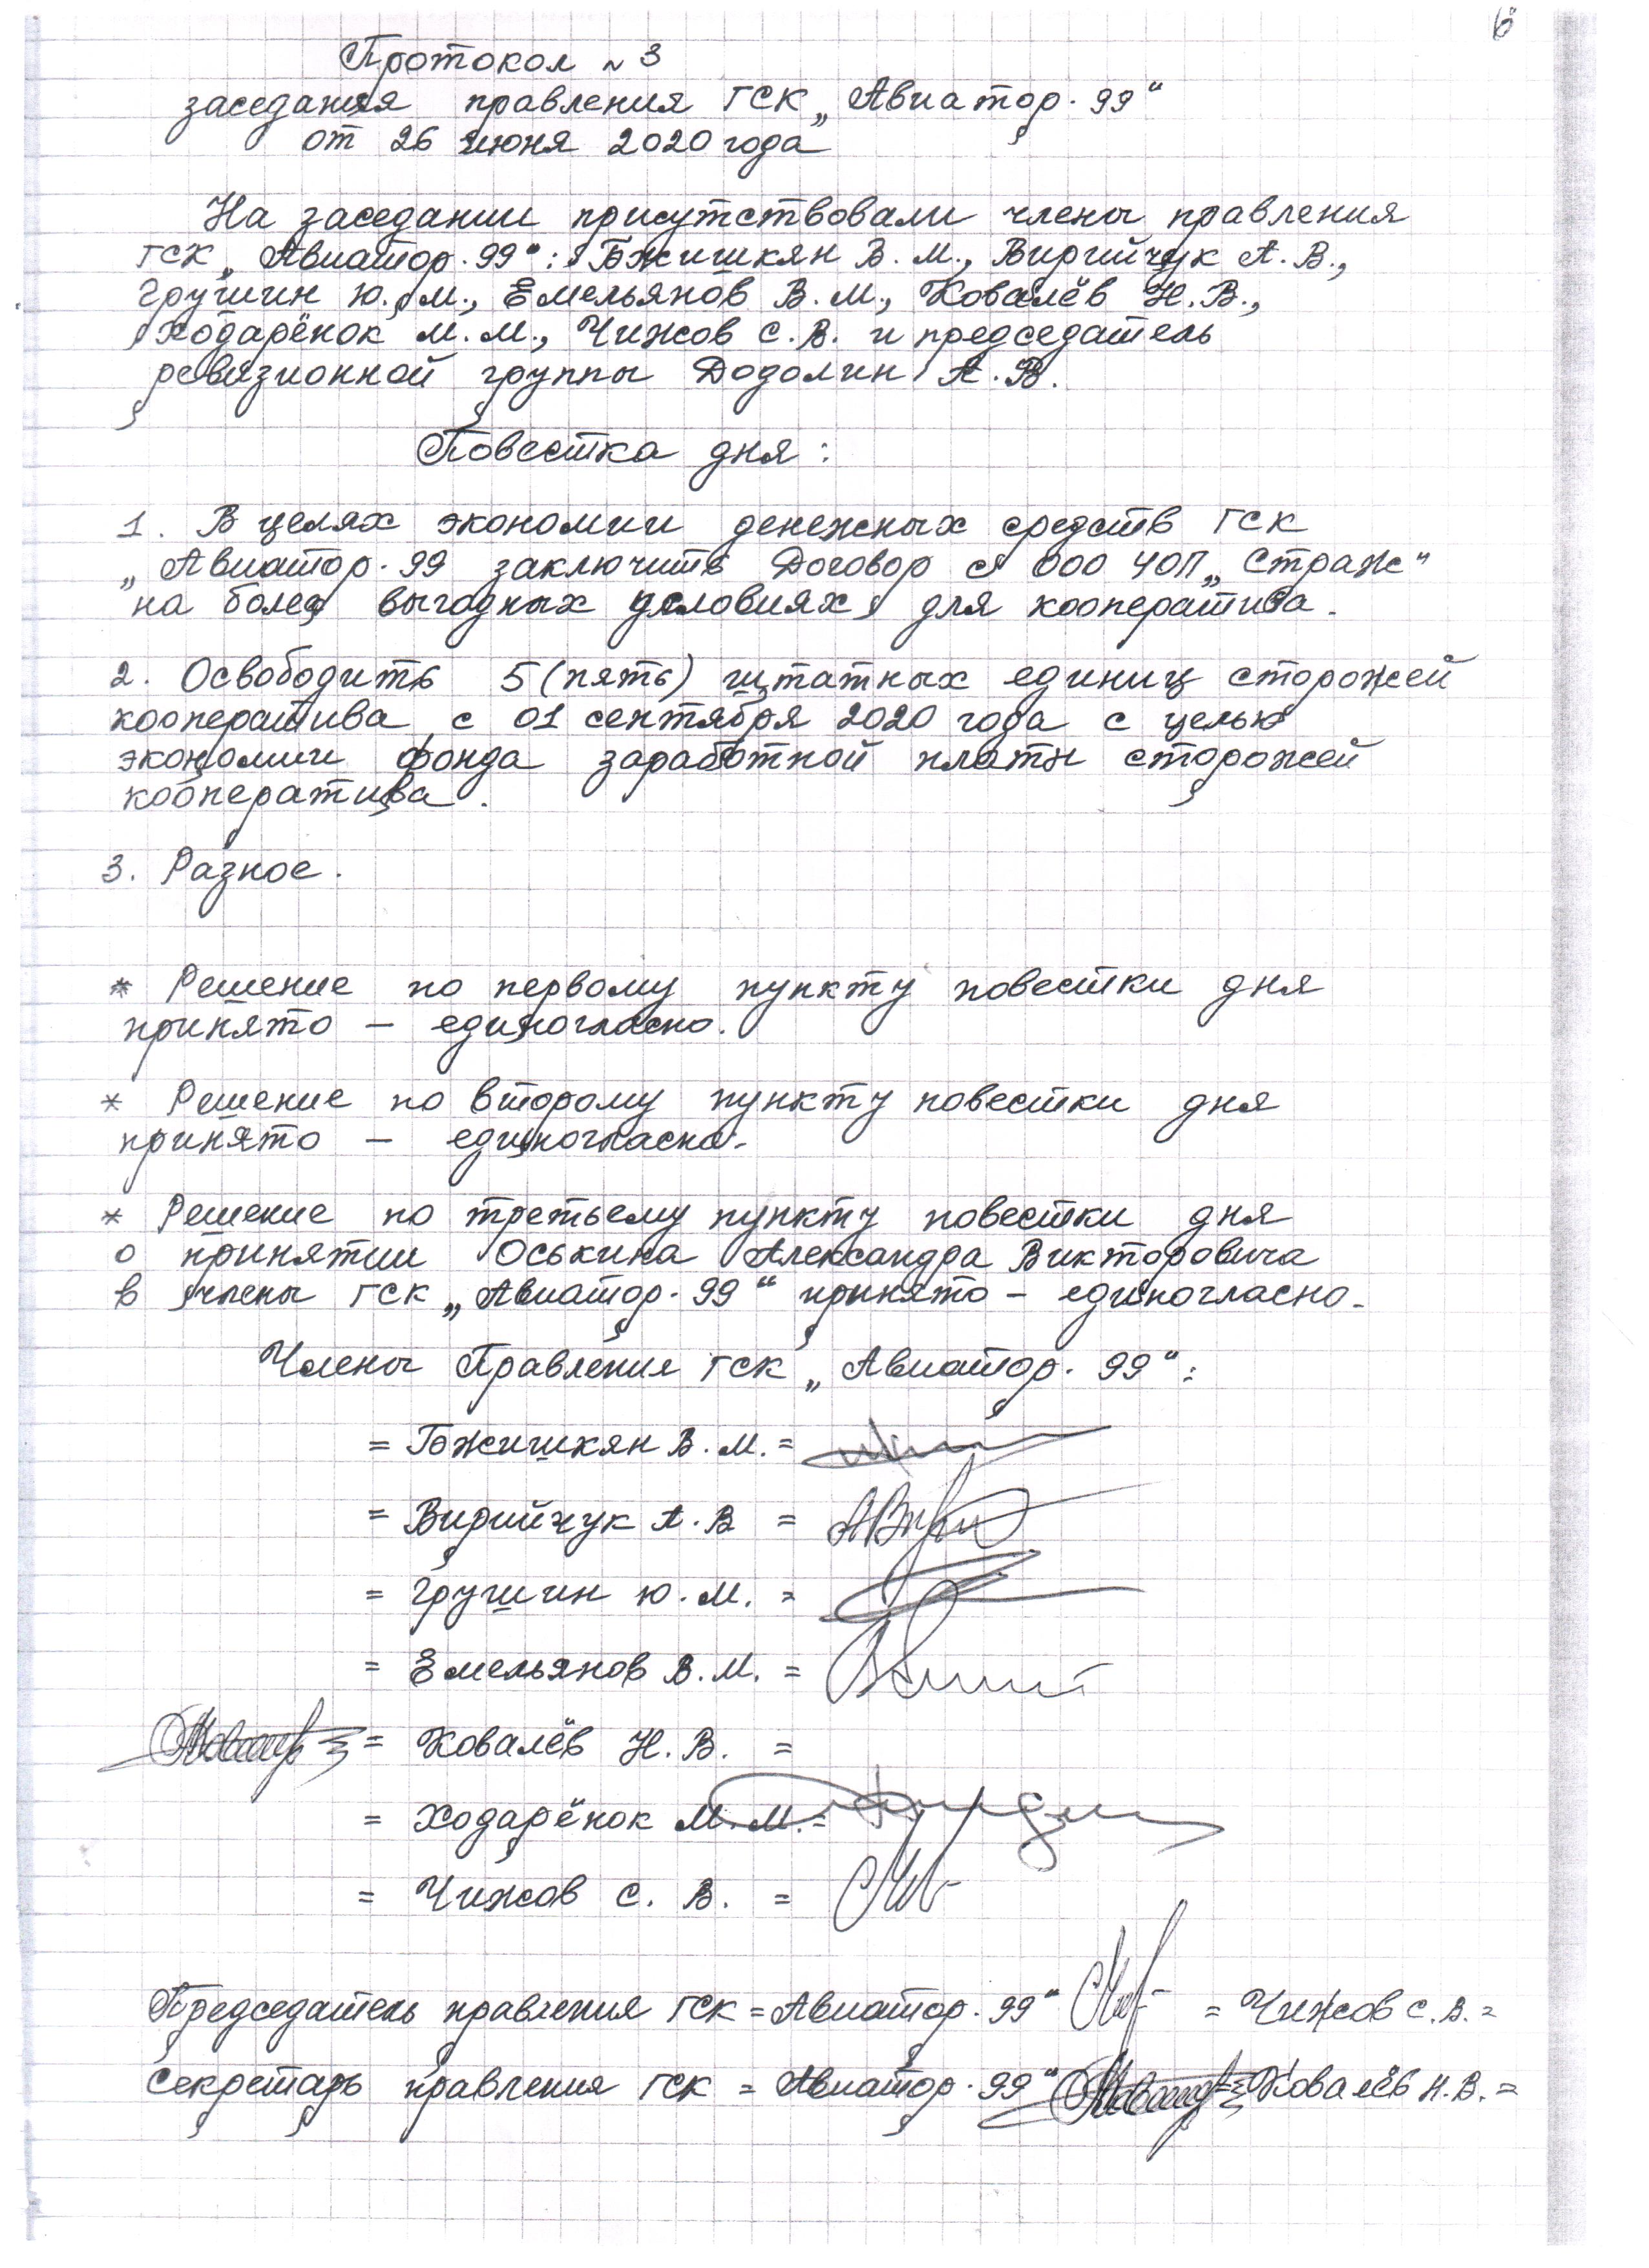 6
Протокол № 3
заседания правления ГСК „Авиатор-99“
от 26 июня 2020 года
На заседании присутствовали члены правления
ГСК „Авиатор-99“: Бжишкян В.М., Вирийчук А.В.,
Грушин Ю.М., Емельянов В.М., Ковалёв Н.В.,
Ходарёнок М.М., Чижов С.В. и председатель
ревизионной группы Додолин А.В.
Повестка дня:
1. В целях экономии денежных средств ГСК
„Авиатор-99 заключить Договор с ООО ЧОП „Страж“
на более выгодных условиях для кооператива.
2. Освободить 5 (пять) штатных единиц сторожей
кооператива с 01 сентября 2020 года с целью
экономии фонда заработной платы сторожей
кооператива.
3. Разное.
* Решение по первому пункту повестки дня
принято – единогласно.
* Решение по второму пункту повестки дня
принято – единогласно.
* Решение по третьему пункту повестки дня
о принятии Оськина Александра Викторовича
в члены ГСК „Авиатор-99“ принято – единогласно.
Члены Правления ГСК „Авиатор-99“:
= Бжишкян В.М. =
= Вирийчук А.В =
= Грушин Ю.М. =
= Емельянов В.М. =
= Ковалёв Н.В. =
= Ходарёнок М.М. =
= Чижов С.В. =
Председатель правления ГСК = Авиатор-99“ = Чижов С.В. =
Секретарь правления ГСК = Авиатор-99“ = Ковалёв Н.В. =